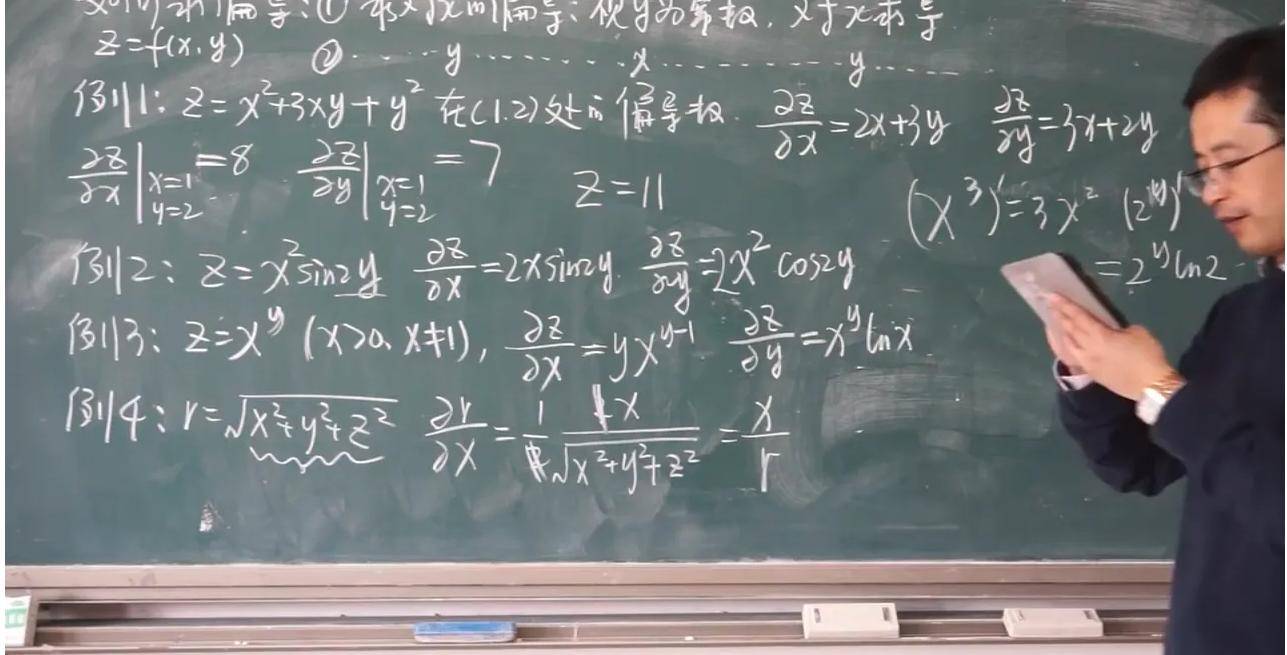 求对x的偏导:视y为常数,对x求导
z=f(x,y) ②·····y·······x··········y·····
例1: z=x²+3xy+y² 在(1.2)处的偏导数. ∂z/∂x=2x+3y ∂z/∂y=3x+2y
∂z/∂x|x=1 y=2 =8 ∂z/∂y|x=1 y=2 =7 z=11 (x³)'=3x² (2^y)'
=2^y ln2
例2: z=x²sin2y ∂z/∂x=2xsin2y. ∂z/∂y=2x²cos2y
例3: z=x^y (x>0, x≠1), ∂z/∂x=yx^(y-1) ∂z/∂y=x^y lnx
例4: r=√(x²+y²+z²) ∂r/∂x= x/√(x²+y²+z²) = x/r